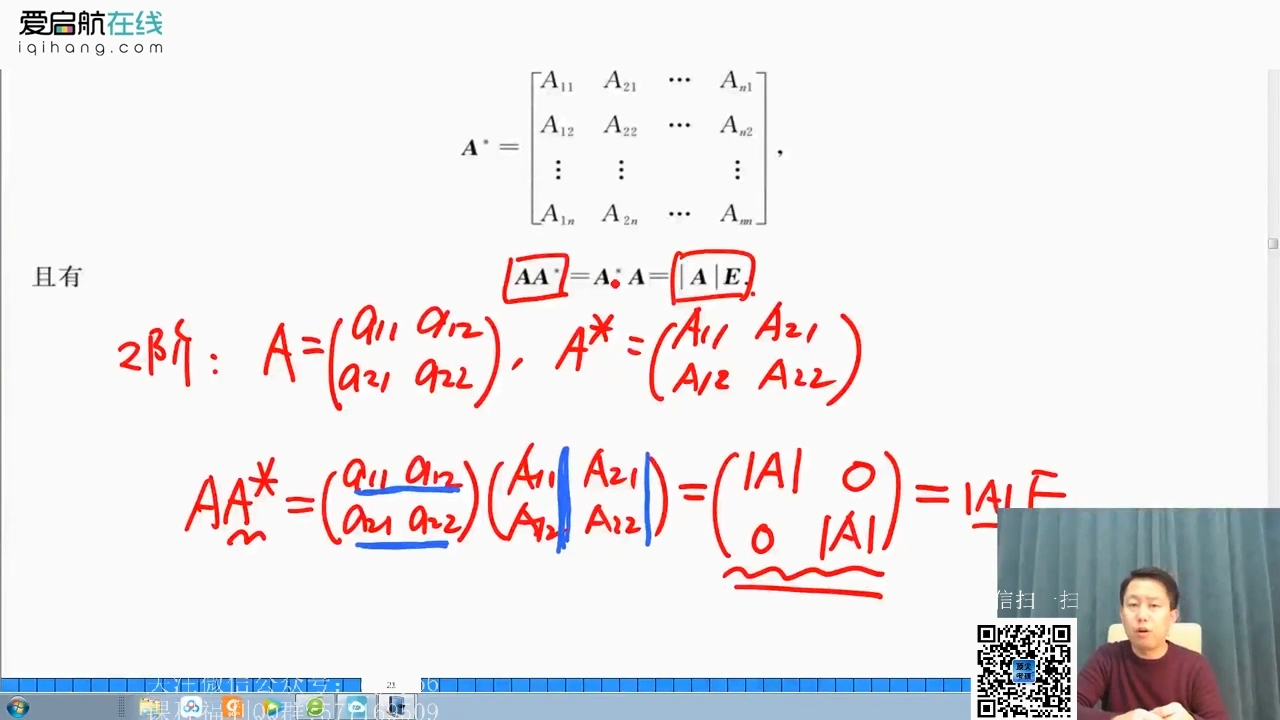 爱启航在线
iqihang.com
A* = [A₁₁ A₂₁ ⋯ Aₙ₁
A₁₂ A₂₂ ⋯ Aₙ₂
⋮ ⋮ ⋮
A₁ₙ A₂ₙ ⋯ Aₙₙ],
且有 AA* = A*A = |A|E.
2阶: A = (a₁₁ a₁₂
a₂₁ a₂₂), A* = (A₁₁ A₂₁
A₁₂ A₂₂)
AA* = (a₁₁ a₁₂
a₂₁ a₂₂)(A₁₁ A₂₁
A₁₂ A₂₂) = (|A| 0
0 |A|) = |A|E
信扫一扫
21